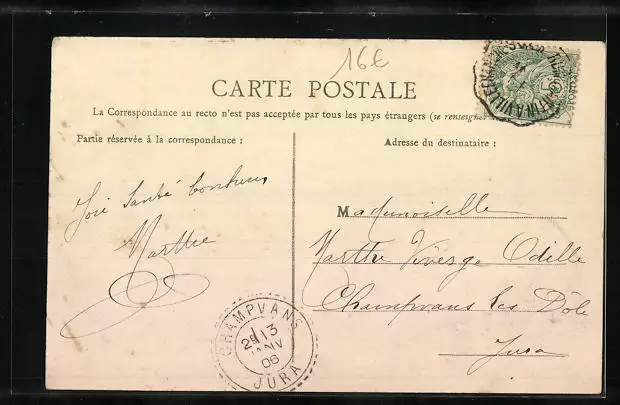 16€
CARTE POSTALE
La Correspondance au recto n'est pas acceptée par tous les pays étrangers (se renseigner
Partie réservée à la correspondance :
Adresse du destinataire :
Joie Santé bonheur
Marthe
Mademoiselle
Marthe Odille
Champvans les Dôle
Jura
CHAMPVANS
13
JANV
06
JURA